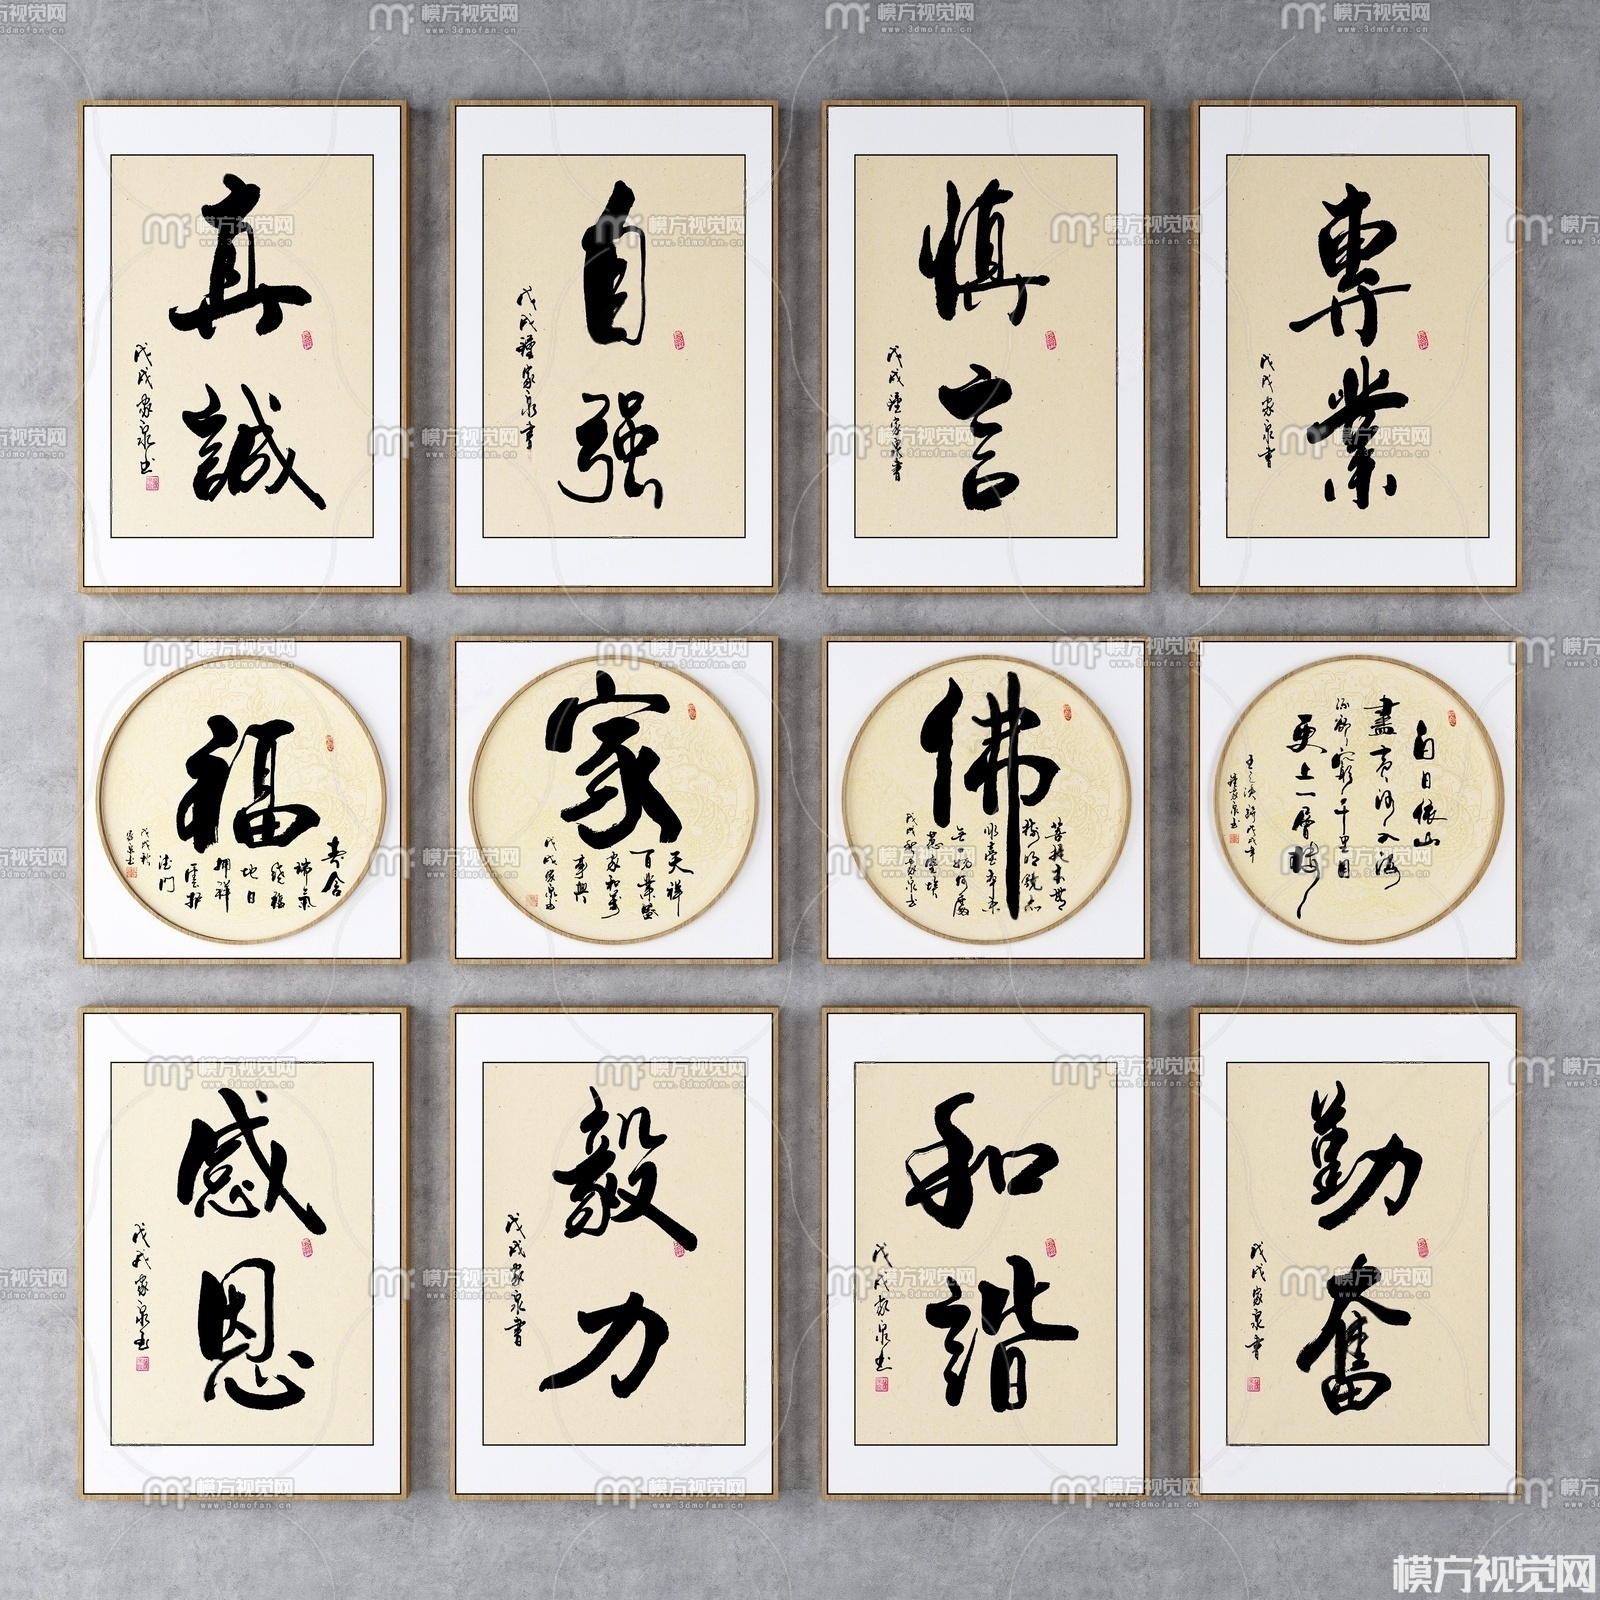 真誠
戊戌家泉书
自强
戊戌鍾家泉書
慎言
戊戌鍾家泉書
專業
戊戌家泉書
福
壽含
瑞氣
盛福
地日
拥祥
雲护
德门
戊戌秋
家泉书
家
天祥
百業盛
家和萬
事興
戊戌家泉书
佛
菩提本無
树明镜亦
非臺本来
無一物何處
惹塵埃
戊戌秋家泉书
白日依山
盡黄河入海
流欲穷千里目
更上一層楼
王之涣诗戊戌年
鍾家泉书
感恩
戊戌家泉书
毅力
戊戌家泉書
和諧
戊戌家泉书
勤奮
戊戌家泉書
模方视觉网
www.3dmofan.cn
模方视觉网